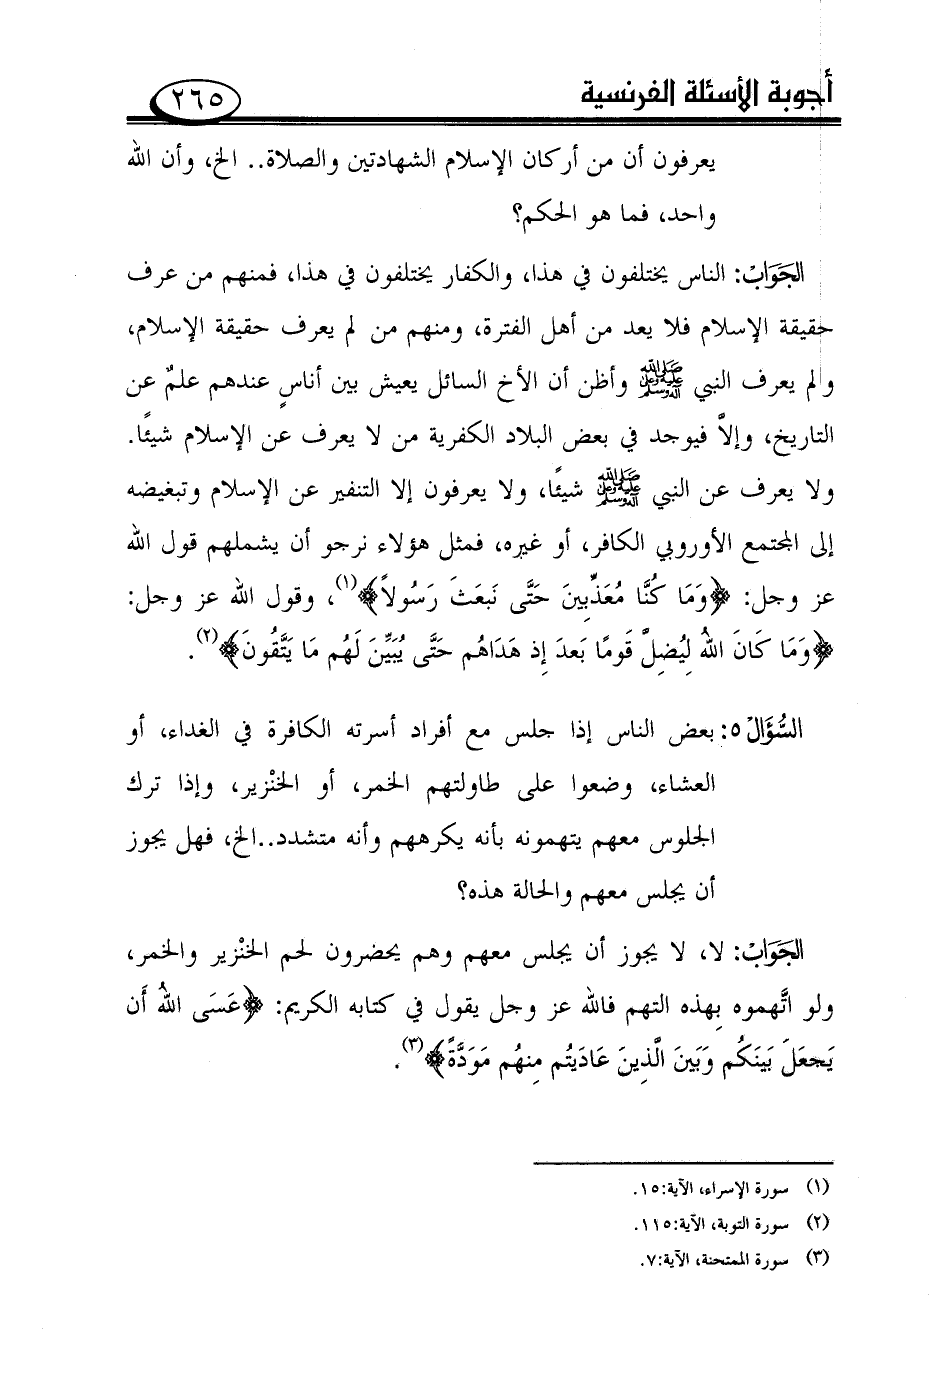 أجوبة الأسئلة الفرنسية ٢٦٥
يعرفون أن من أركان الإسلام الشهادتين والصلاة.. الخ، وأن الله
واحد، فما هو الحكم؟
الجَوَابُ: الناس يختلفون في هذا، والكفار يختلفون في هذا، فمنهم من عرف
حقيقة الإسلام فلا يعد من أهل الفترة، ومنهم من لم يعرف حقيقة الإسلام،
ولم يعرف النبي ﷺ وأظن أن الأخ السائل يعيش بين أناسٍ عندهم علمٌ عن
التاريخ، وإلاَّ فيوجد في بعض البلاد الكفرية من لا يعرف عن الإسلام شيئًا.
ولا يعرف عن النبي ﷺ شيئًا، ولا يعرفون إلا التنفير عن الإسلام وتبغيضه
إلى المجتمع الأوروبي الكافر، أو غيره، فمثل هؤلاء نرجو أن يشملهم قول الله
عز وجل: ﴿وَمَا كُنَّا مُعَذِّبِينَ حَتَّى نَبعَثَ رَسُولاً﴾(١)، وقول الله عز وجل:
﴿وَمَا كَانَ اللهُ لِيُضِلَّ قَومًا بَعدَ إِذ هَدَاهُم حَتَّى يُبَيِّنَ لَهُم مَا يَتَّقُونَ﴾(٢).
السُّؤَالُ ٥: بعض الناس إذا جلس مع أفراد أسرته الكافرة في الغداء، أو
العشاء، وضعوا على طاولتهم الخمر، أو الخنْزير، وإذا ترك
الجلوس معهم يتهمونه بأنه يكرههم وأنه متشدد..الخ، فهل يجوز
أن يجلس معهم والحالة هذه؟
الجَوَابُ: لا، لا يجوز أن يجلس معهم وهم يحضرون لحم الخنْزير والخمر،
ولو اتَّهموه بِهذه التهم فالله عز وجل يقول في كتابه الكريم: ﴿عَسَى اللهُ أَن
يَجعَلَ بَينَكُم وَبَينَ الَّذِينَ عَادَيتُم مِنهُم مَوَدَّةً﴾(٣).
(١) سورة الإسراء، الآية:١٥.
(٢) سورة التوبة، الآية:١١٥.
(٣) سورة الممتحنة، الآية:٧.